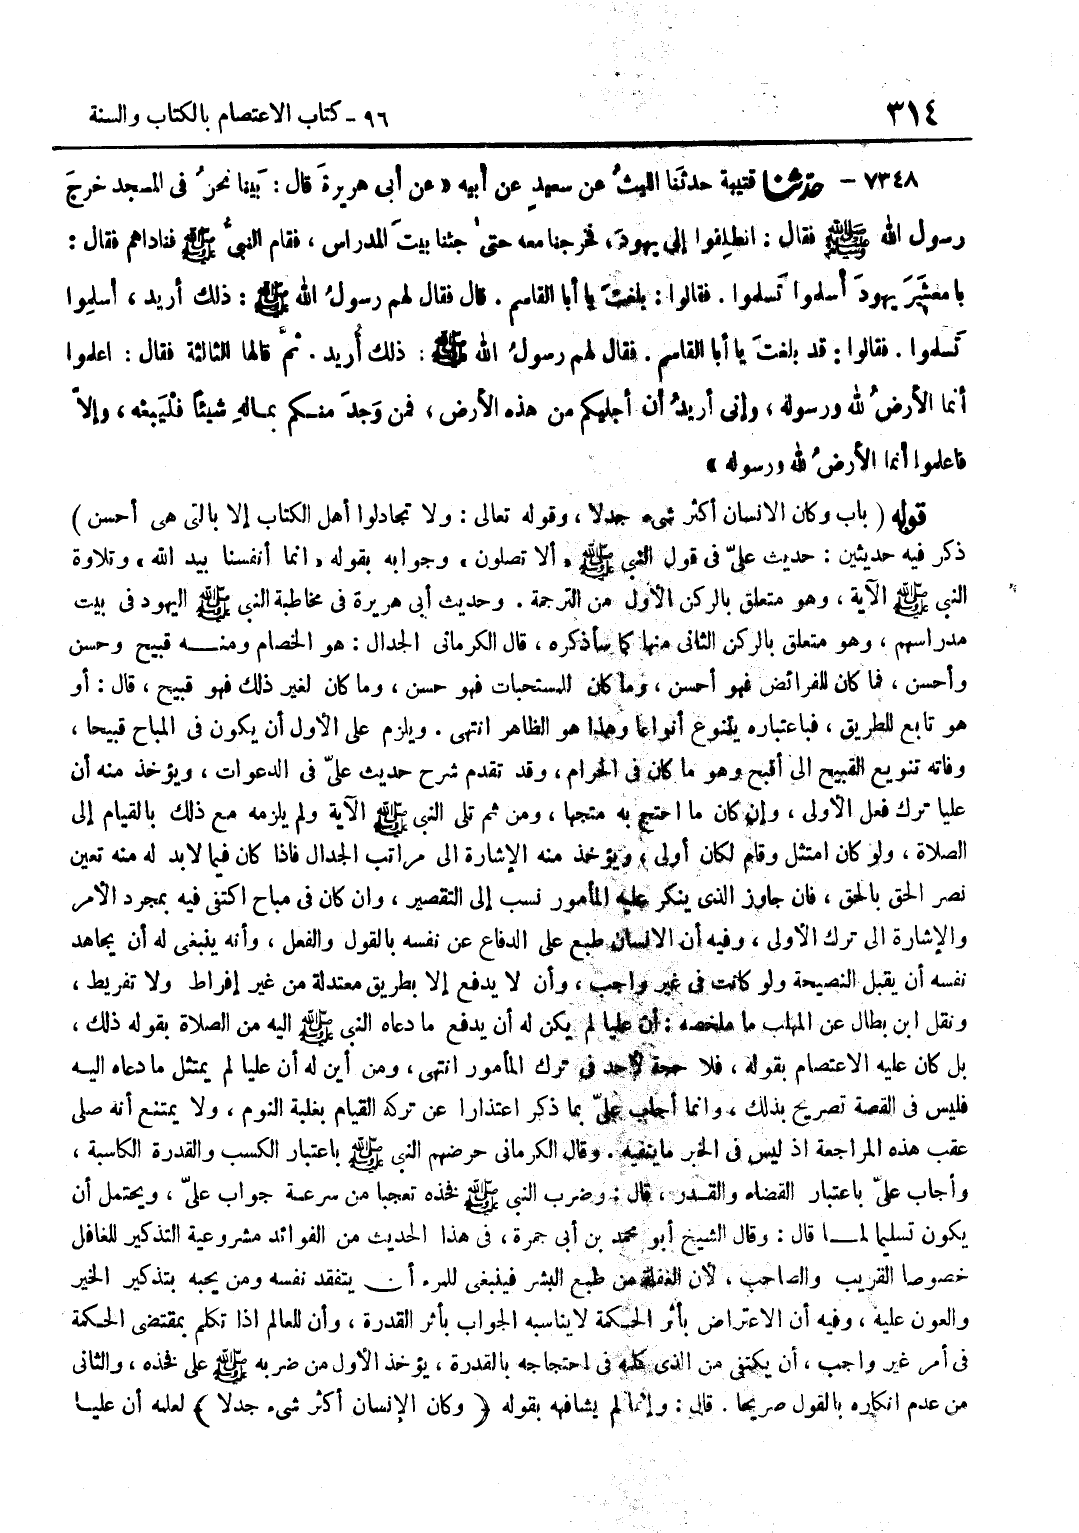 ٣١٤
٩٦ - كتاب الاعتصام بالكتاب والسنة
٧٣٤٨ - حدثنا قتيبة حدثنا الليثُ عن سعيدٍ عن أبيه « عن أبى هريرةَ قال : بَينا نحنُ فى المسجد خرجَ
رسول الله ﷺ فقال : انطلِقوا إلى يهودَ ، فخرجنا معه حتىٰ جئنا بيتَ المدراس ، فقام النبىُّ ﷺ فناداهم فقال :
يا معشَرَ يهودَ أسلموا تَسلموا . فقالوا : بلغتَ يا أبا القاسم . قال فقال لهم رسولُ الله ﷺ : ذلك أريد ، أسلِموا
تَسلموا . فقالوا : قد بلغتَ يا أبا القاسم . فقال لهم رسولُ الله ﷺ : ذلك أُريد . ثمَّ قالها الثالثة فقال : اعلموا
أنما الأرضُ لله ورسوله ، وإنى أريدُ أن أجليكم من هذه الأرض ، فمن وَجدَ منكم بمالهِ شيئاً فلْيَبعْه ، وإلاّ
فاعلموا أنما الأرضُ لله ورسوله »
قوله ( باب وكان الانسان أكثر شىء جدلا ، وقوله تعالى : ولا تجادلوا أهل الكتاب إلا بالتى هى أحسن )
ذكر فيه حديثين : حديث علىّ فى قول النبي ﷺ « ألا تصلون » وجوابه بقوله « انما أنفسنا بيد الله » وتلاوة
النبي ﷺ الآية ، وهو متعلق بالركن الأول من الترجمة . وحديث أبي هريرة فى مخاطبة النبي ﷺ اليهود فى بيت
مدراسهم ، وهو متعلق بالركن الثانى منها كما سأذكره ، قال الكرمانى الجدال : هو الخصام ومنه قبيح وحسن
وأحسن ، فما كان للفرائض فهو أحسن ، وما كان للمستحبات فهو حسن ، وما كان لغير ذلك فهو قبيح ، قال : أو
هو تابع للطريق ، فباعتباره يتنوع أنواعا وهذا هو الظاهر انتهى . ويلزم على الأول أن يكون فى المباح قبيحا ،
وفاته تنويع القبيح الى أقبح وهو ما كان فى الحرام ، وقد تقدم شرح حديث علىّ فى الدعوات ، ويؤخذ منه أن
عليا ترك فعل الأولى ، وإن كان ما احتج به متجها ، ومن ثم تلى النبي ﷺ الآية ولم يلزمه مع ذلك بالقيام إلى
الصلاة ، ولو كان امتثل وقام لكان أولى ، ويؤخذ منه الإشارة الى مراتب الجدال فاذا كان فيما لابد له منه تعين
نصر الحق بالحق ، فان جاوز الذى ينكر عليه المأمور نسب إلى التقصير ، وان كان فى مباح اكتفى فيه بمجرد الأمر
والإشارة الى ترك الأولى ، وفيه أن الانسان طبع على الدفاع عن نفسه بالقول والفعل ، وأنه ينبغى له أن يجاهد
نفسه أن يقبل النصيحة ولو كانت فى غير واجب ، وأن لا يدفع إلا بطريق معتدلة من غير إفراط ولا تفريط ،
ونقل ابن بطال عن المهلب ما ملخصه : أن عليا لم يكن له أن يدفع ما دعاه النبي ﷺ اليه من الصلاة بقوله ذلك ،
بل كان عليه الاعتصام بقوله ، فلا حجة لأحد فى ترك المأمور انتهى ، ومن أين له أن عليا لم يمتثل ما دعاه اليه
فليس فى القصة تصريح بذلك ، وانما أجاب علىّ بما ذكر اعتذارا عن تركه القيام بغلبة النوم ، ولا يمتنع أنه صلى
عقب هذه المراجعة اذ ليس فى الخبر ما ينفيه . وقال الكرمانى حرضهم النبي ﷺ باعتبار الكسب والقدرة الكاسبة ،
وأجاب علىّ باعتبار القضاء والقدر ، قال : وضرب النبي ﷺ فخذه تعجبا من سرعة جواب علىّ ، ويحتمل أن
يكون تسليما لما قال : وقال الشيخ أبو محمد بن أبى جمرة ، فى هذا الحديث من الفوائد مشروعية التذكير للغافل
خصوصا القريب والصاحب ، لأن الغفلة من طبع البشر فينبغى للمرء أن يتفقد نفسه ومن يحبه بتذكير الخير
والعون عليه ، وفيه أن الاعتراض بأثر الحكمة لايناسبه الجواب بأثر القدرة ، وأن للعالم اذا تكلم بمقتضى الحكمة
فى أمر غير واجب ، أن يكتفى من الذى كلمه فى احتجاجه بالقدرة ، يؤخذ الأول من ضربه ﷺ على فخذه ، والثانى
من عدم انكاره بالقول صريحا . قال : وإنما لم يشافهه بقوله ﴿ وكان الإنسان أكثر شىء جدلا ﴾ لعلمه أن عليا